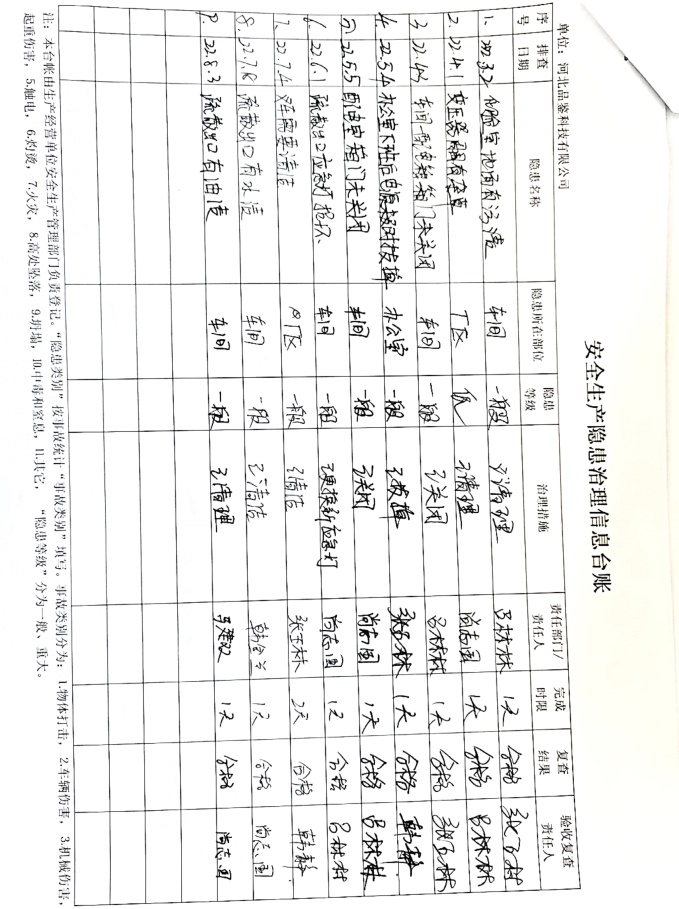 安全生产隐患治理信息台账
单位：河北品鉴科技有限公司
序号 排查日期 隐患名称 隐患所在部位 隐患等级 治理措施 责任部门/责任人 完成时限 复查结果 验收复查责任人
1. 22.3.2 化验室地面有污渍 车间 一般 已清理 吕林林 1天 合格 张玉林
2. 22.4.1 变压器 厂区 低 已清理 尚志国 1天 合格 吕林林
3. 22.4.2 车间配电柜箱门未关闭 车间 一般 已关闭 吕林林 1天 合格 张玉林
4. 22.5.4 办公室下班后电源插排未拔掉 办公室 一般 已拔掉 张玉林 1天 合格 韩静
5. 22.5.5 配电室箱门未关闭 车间 一般 已关闭 尚志国 1天 合格 吕林林
6. 22.6.1 疏散出口应急灯损坏 车间 一般 已更换新应急灯 尚志国 1天 合格 吕林林
7. 22.7.4 需要清洁 厂区 一般 已清洁 张玉林 2天 合格 韩静
8. 22.7.8 疏散出口有水渍 车间 一般 已清洁 韩金兰 1天 合格 尚志国
9. 22.8.3 疏散出口有油渍 车间 一般 已清理 马建双 1天 合格 尚志国
注：本台帐由生产经营单位安全生产管理部门负责登记。“隐患类别”按事故统计“事故类别”填写。事故类别分为：1.物体打击，2.车辆伤害，3.机械伤害，
起重伤害，5.触电，6.灼烫，7.火灾，8.高处坠落，9.坍塌，10.中毒和窒息，11.其它，“隐患等级”分为一般、重大。